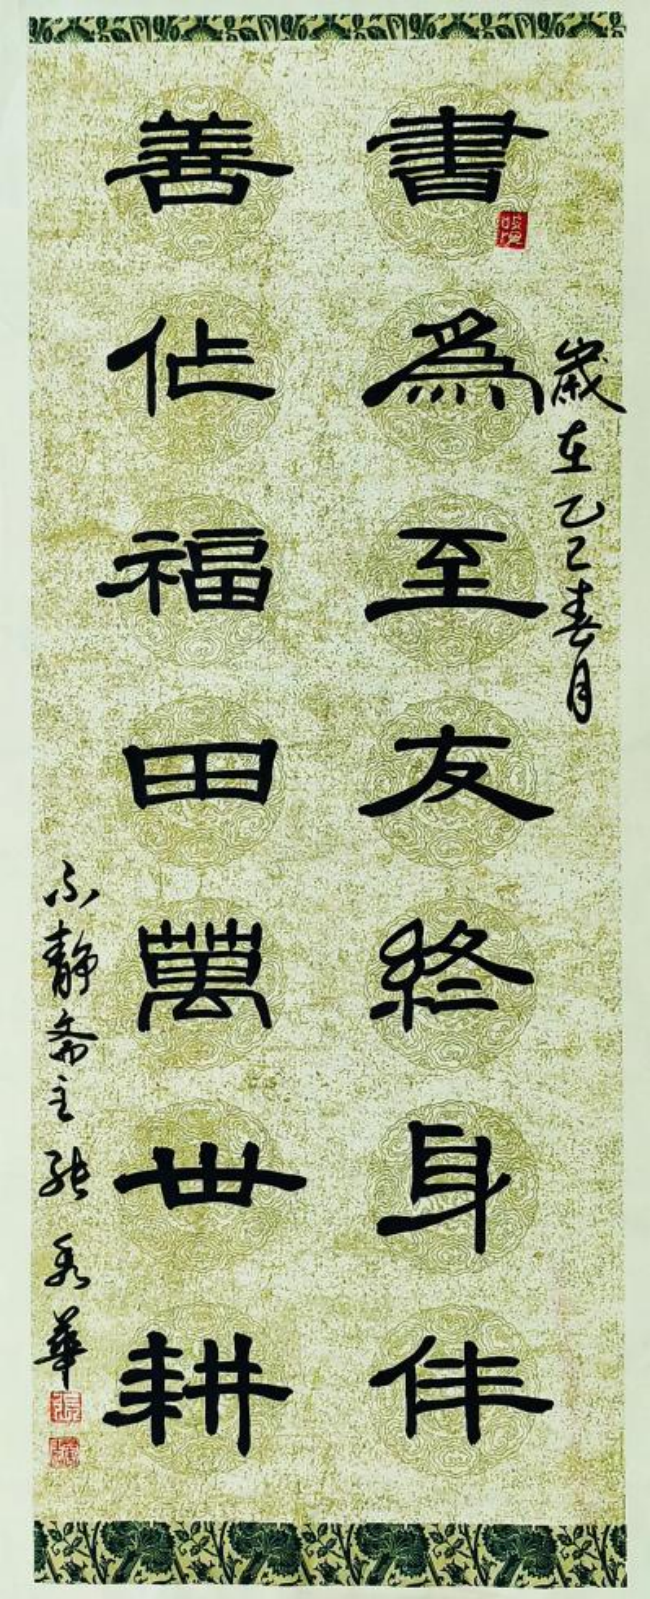 歲在乙巳春月
書為至友終身伴
善作福田萬世耕
靜齋主張秀華